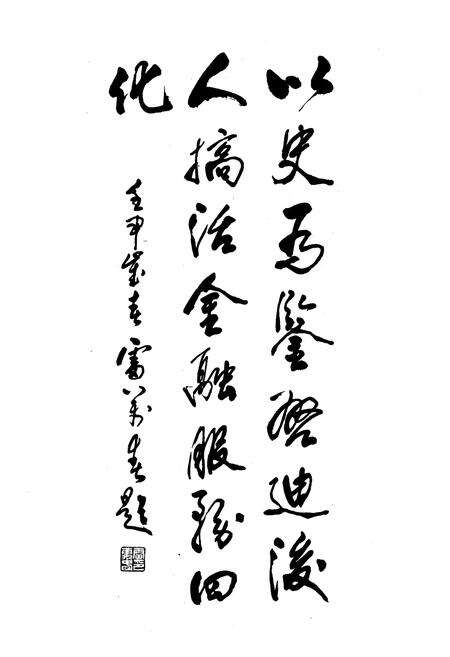 以史為鑒啓迪後
人搞活金融服務四
化
壬申歲春雷八萬春題